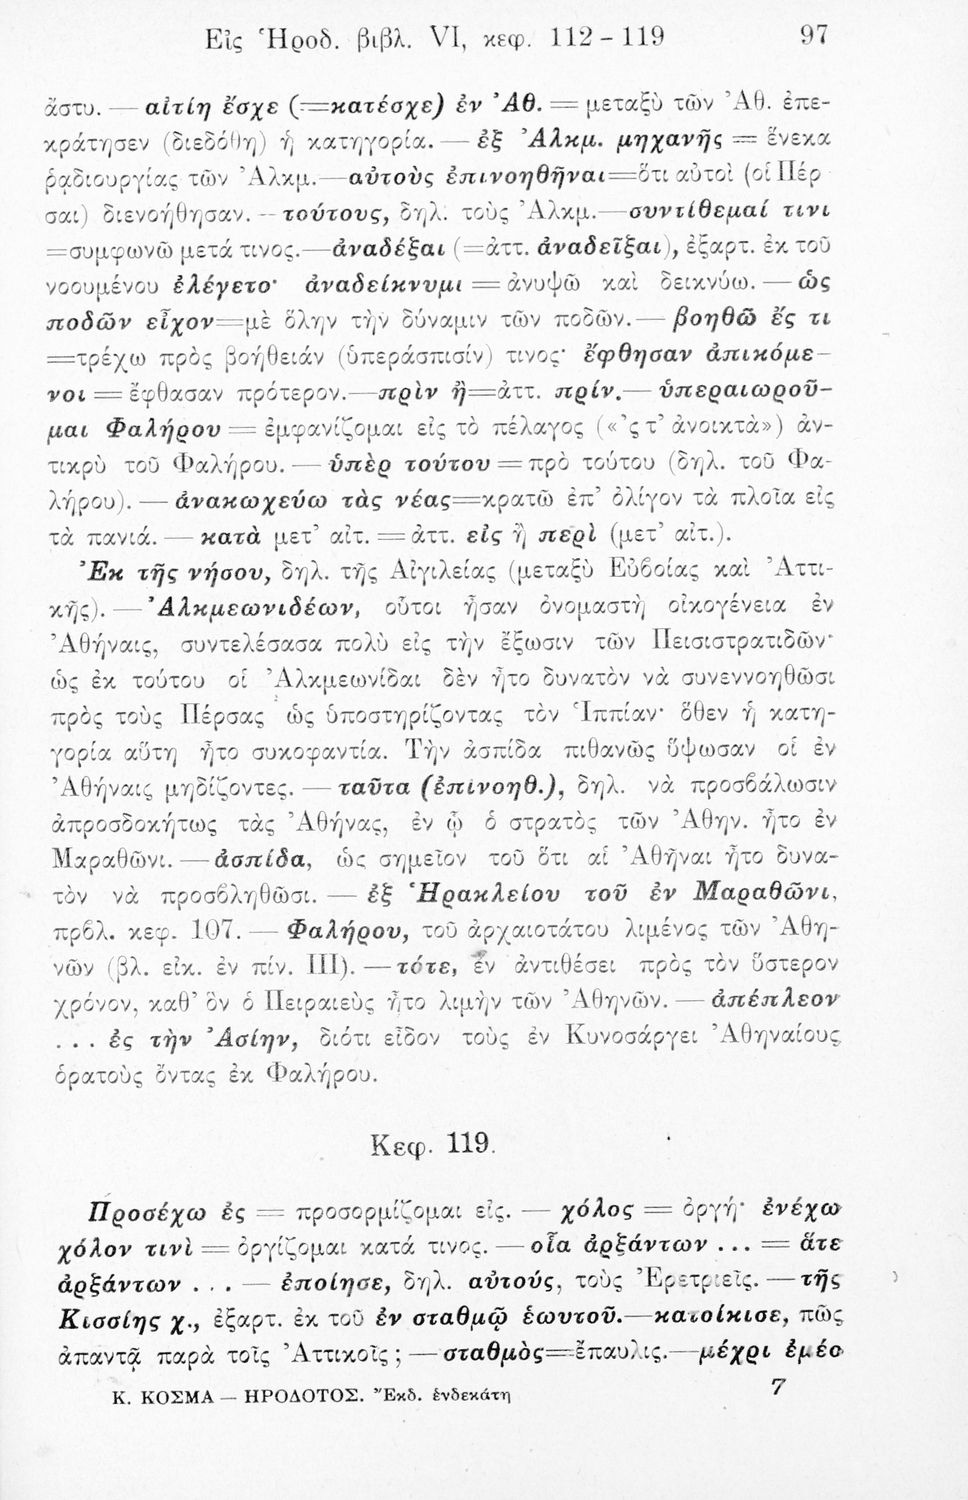 Εἰς Ἡροδ. βιβλ. VI, κεφ. 112 - 119 97
ἄστυ. — αἰτίη ἔσχε (=κατέσχε) ἐν Ἀθ. = μεταξὺ τῶν Ἀθ. ἐπε-
κράτησεν (διεδόθη) ἡ κατηγορία. — ἐξ Ἀλκμ. μηχανῆς = ἕνεκα
ῥᾳδιουργίας τῶν Ἀλκμ.—αὐτοὺς ἐπινοηθῆναι=ὅτι αὐτοὶ (οἱ Πέρ
σαι) διενοήθησαν. - τούτους, δηλ. τοὺς Ἀλκμ.—συντίθεμαί τινι
=συμφωνῶ μετά τινος.—ἀναδέξαι (=ἀττ. ἀναδεῖξαι), ἐξαρτ. ἐκ τοῦ
νοουμένου ἐλέγετο· ἀναδείκνυμι = ἀνυψῶ καὶ δεικνύω. — ὡς
ποδῶν εἶχον=μὲ ὅλην τὴν δύναμιν τῶν ποδῶν. — βοηθῶ ἔς τι
=τρέχω πρὸς βοήθειάν (ὑπεράσπισίν) τινος· ἔφθησαν ἀπικόμε-
νοι = ἔφθασαν πρότερον.—πρὶν ἢ=ἀττ. πρίν.— ὑπεραιωροῦ-
μαι Φαλήρου = ἐμφανίζομαι εἰς τὸ πέλαγος («'ς τ' ἀνοικτὰ») ἀν-
τικρὺ τοῦ Φαλήρου. — ὑπὲρ τούτου = πρὸ τούτου (δηλ. τοῦ Φα-
λήρου). — ἀνακωχεύω τὰς νέας=κρατῶ ἐπ' ὀλίγον τὰ πλοῖα εἰς
τὰ πανιά. — κατὰ μετ' αἰτ. = ἀττ. εἰς ἢ περὶ (μετ' αἰτ.).
Ἐκ τῆς νήσου, δηλ. τῆς Αἰγιλείας (μεταξὺ Εὐβοίας καὶ Ἀττι-
κῆς). — Ἀλκμεωνιδέων, οὗτοι ἦσαν ὀνομαστὴ οἰκογένεια ἐν
Ἀθήναις, συντελέσασα πολὺ εἰς τὴν ἔξωσιν τῶν Πεισιστρατιδῶν·
ὡς ἐκ τούτου οἱ Ἀλκμεωνίδαι δὲν ἦτο δυνατὸν νὰ συνεννοηθῶσι
πρὸς τοὺς Πέρσας ὡς ὑποστηρίζοντας τὸν Ἱππίαν· ὅθεν ἡ κατη-
γορία αὕτη ἦτο συκοφαντία. Τὴν ἀσπίδα πιθανῶς ὕψωσαν οἱ ἐν
Ἀθήναις μηδίζοντες. — ταῦτα (ἐπινοηθ.), δηλ. νὰ προσβάλωσιν
ἀπροσδοκήτως τὰς Ἀθήνας, ἐν ᾧ ὁ στρατὸς τῶν Ἀθην. ἦτο ἐν
Μαραθῶνι. — ἀσπίδα, ὡς σημεῖον τοῦ ὅτι αἱ Ἀθῆναι ἦτο δυνα-
τὸν νὰ προσβληθῶσι. — ἐξ Ἡρακλείου τοῦ ἐν Μαραθῶνι,
πρβλ. κεφ. 107. — Φαλήρου, τοῦ ἀρχαιοτάτου λιμένος τῶν Ἀθη-
νῶν (βλ. εἰκ. ἐν πίν. III). — τότε, ἐν ἀντιθέσει πρὸς τὸν ὕστερον
χρόνον, καθ' ὃν ὁ Πειραιεὺς ἦτο λιμὴν τῶν Ἀθηνῶν. — ἀπέπλεον
... ἐς τὴν Ἀσίην, διότι εἶδον τοὺς ἐν Κυνοσάργει Ἀθηναίους
ὁρατοὺς ὄντας ἐκ Φαλήρου.
Κεφ. 119.
Προσέχω ἐς = προσορμίζομαι εἰς. — χόλος = ὀργή· ἐνέχω
χόλον τινὶ = ὀργίζομαι κατά τινος. — οἷα ἀρξάντων ... = ἅτε
ἀρξάντων ... — ἐποίησε, δηλ. αὐτούς, τοὺς Ἐρετριεῖς. — τῆς
Κισσίης χ., ἐξαρτ. ἐκ τοῦ ἐν σταθμῷ ἑωυτοῦ.—κατοίκισε, πῶς
ἀπαντᾷ παρὰ τοῖς Ἀττικοῖς; — σταθμὸς=ἔπαυλις.—μέχρι ἐμέο
Κ. ΚΟΣΜΑ — ΗΡΟΔΟΤΟΣ. Ἔκδ. ἑνδεκάτη 7